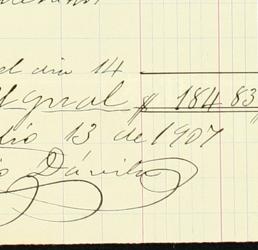 el dia 14
Igual $ 184 83
lio 13 de 1907
o Dávila